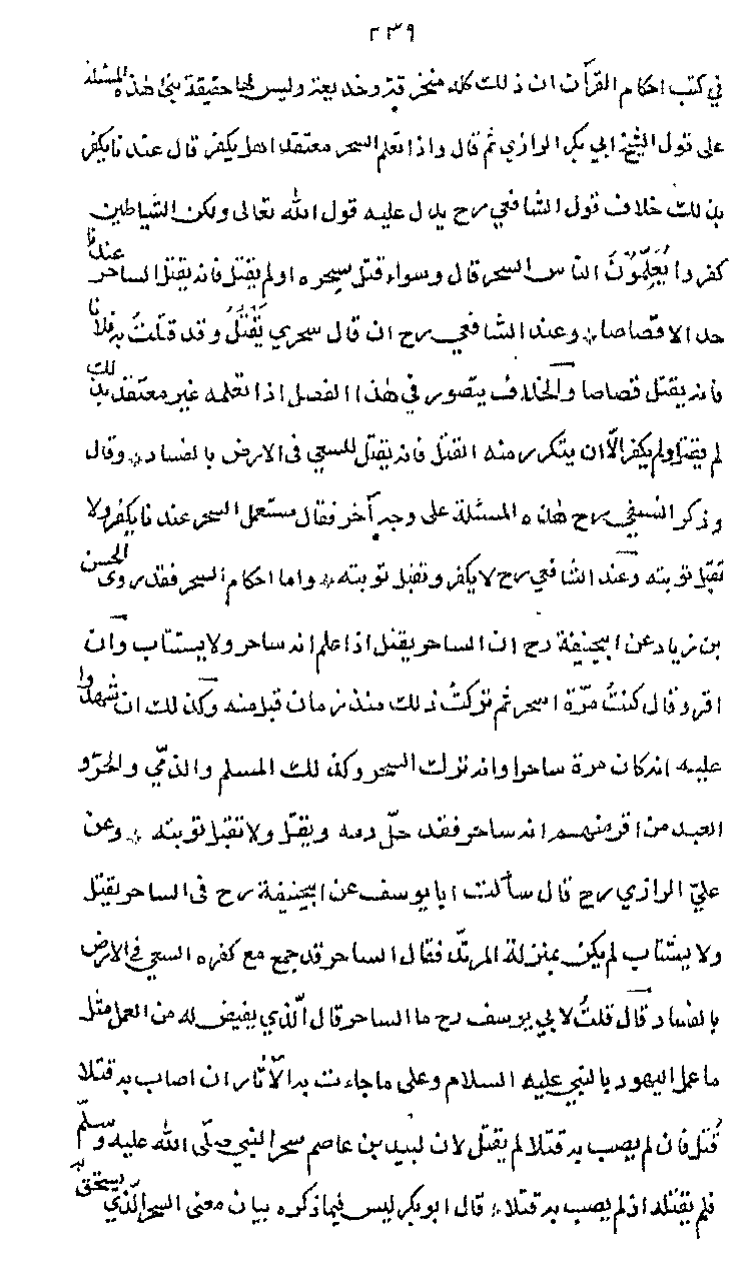 ٢٣٩
في كتب احكام القرآن ان ذلك كله منخرقة وخديعة وليس لها حقيقة بنى هذه المسئلة
على قول الشيخ ابي بكر الرازي ثم قال واذا تعلم السحر معتقدا هل يكفر قال عندنا يكفر
بذلك خلاف قول الشافعي رح يدل عليه قول الله تعالى ولكن الشياطين
كفروا يُعَلِّمُونَ الناس السحر قال وسواء قتل بسحره اولم يقتل فانه يقتل الساحر عندنا
حدا لا قصاصا ٭ وعند الشافعي رح ان قال سحري يَقْتُلُ وقد قتلتُ به فلانا
فانه يقتل قصاصا والخلاف يتصور في هذا الفصل اذا تعلمه غير معتقد بذلك
لم يقتل ولم يكفر الّا ان يتكرر منه القتل فانه يقتل للسعي فى الارض بالفساد ٭ وقال
وذكر النسفي رح هذه المسئلة على وجه آخر فقال مستعمل السحر عندنا يكفر ولا
تقبل توبته وعند الشافعي رح لا يكفر وتقبل توبته ٭ واما احكام السحر فقد روى الحسن
بن زياد عن ابيحنيفة رح ان الساحر يقتل اذا علم انه ساحر ولا يستتاب وان
اقر وقال كنتُ مرّة اسحر ثم تركتُ ذلك منذ زمان قبل منه وكذلك ان شهدوا
عليه انه كان مرة ساحرا وانه ترك السحر وكذلك المسلم والذمّي والحرّ و
العبد من اقر منهم انه ساحر فقد حلّ دمه ويقتل ولا تقبل توبته ٭ وعن
عليّ الرازي رح قال سألت ابا يوسف عن ابيحنيفة رح فى الساحر يقتل
ولا يستتاب لم يكن بمنزلة المرتدّ فقال الساحر قد جمع مع كفره السعي في الارض
بالفساد قال قلتُ لابي يوسف رح ما الساحر قال الّذي يفيض له من العمل مثل
ما عمل اليهود بالنبي عليه السلام وعلى ما جاءت به الآثار ان اصاب به قتلا
قُتل فان لم يصب به قتلا لم يقتل لان لبيد بن عاصم سحر النبي صلّى الله عليه وسلّم
فلم يقتله اذ لم يصب به قتلا ٭ قال ابو بكر ليس فيما ذكره بيان معنى السحر الّذي يستحق به